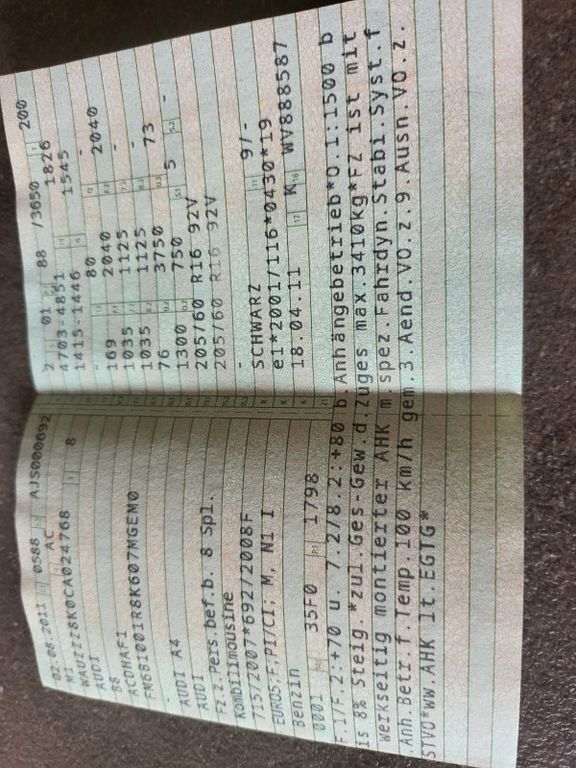 02.08.2011 0588 AJS000692
M1 AC
WAUZZZ8K0CA024768 8
AUDI
B8
ACDHAF1
FM6BI001R8K607MGEM0
-
AUDI A4
AUDI
Fz.z.Pers.bef.b. 8 Spl.
Kombilimousine
715/2007*692/2008F
EURO5;F;PI/CI; M, N1 I
Benzin
0001 35F0 1798
2 01 88 /3650 200
4703-4851 1826
1415-1446 1545
- 80 -
169 2040 2040
1035 1125 -
1035 1125 -
76 3750 73
1300 750 5 -
205/60 R16 92V
205/60 R16 92V
-
SCHWARZ 9/-
e1*2001/116*0430*19
18.04.11 K WV888587
F.1/F.2:+/0 u. 7.2/8.2:+80 b.Anhängebetrieb*O.1:1500 b
is 8% Steig.*zul.Ges-Gew.d.Zuges max.3410kg*FZ ist mit
werkseitig montierter AHK m.spez.Fahrdyn.Stabi.Syst.f
.Anh.Betr.f.Temp.100 km/h gem.3.Aend.VO.z.9.Ausn.VO.z.
STVO*ww.AHK lt.EGTG*